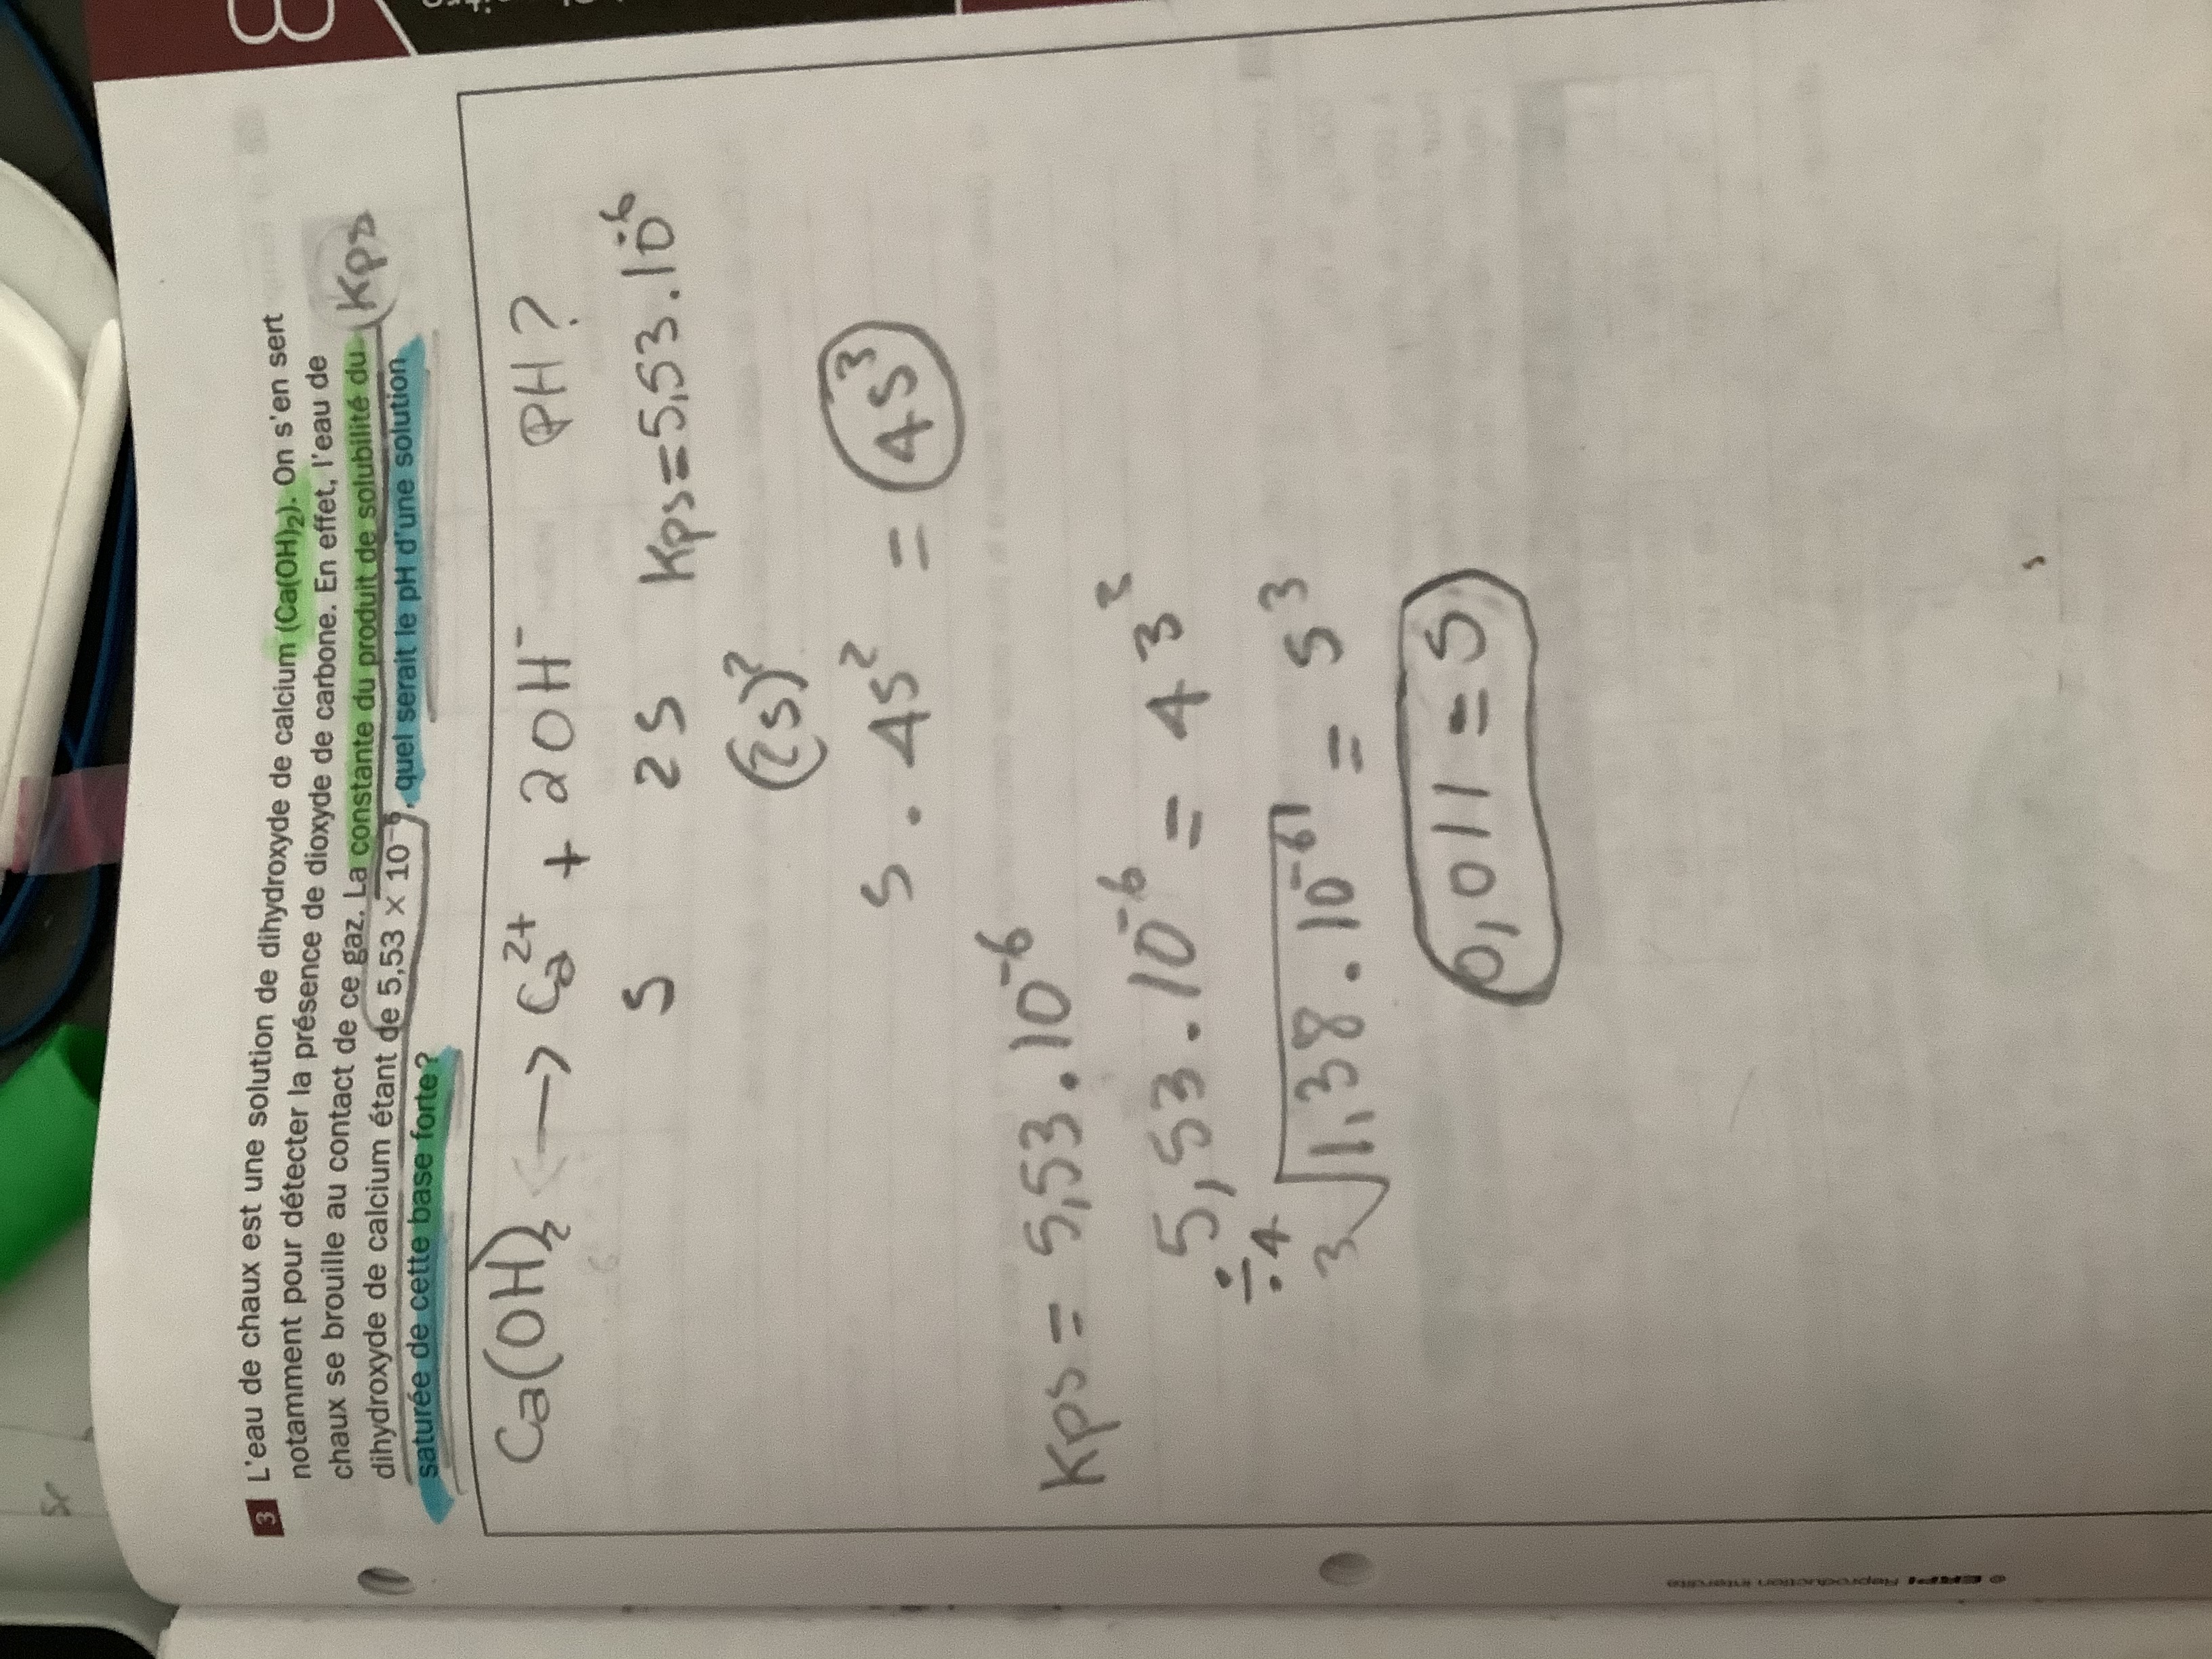 3 L'eau de chaux est une solution de dihydroxyde de calcium (Ca(OH)₂). On s'en sert
notamment pour détecter la présence de dioxyde de carbone. En effet, l'eau de
chaux se brouille au contact de ce gaz. La constante du produit de solubilité du Kps
dihydroxyde de calcium étant de 5,53 × 10⁻⁶, quel serait le pH d'une solution
saturée de cette base forte?
Ca(OH)₂ ⟷ Ca²⁺ + 2OH⁻ PH?
S 2S Kps=5,53.10⁻⁶
(2s)²
S . 4S² = 4S³
Kps = 5,53.10⁻⁶
5,53.10⁻⁶ = 43²
÷4
3√1,38.10⁻⁶ = S³
0,011 = S
© ERPI Reproduction interdite